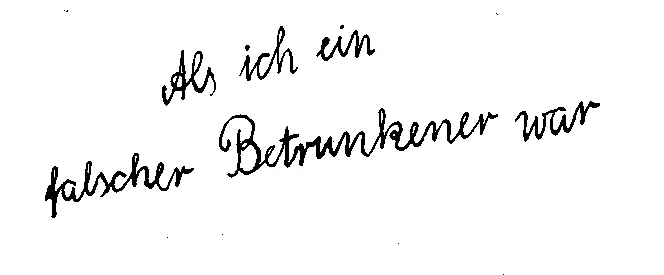 Als ich ein
falscher Betrunkener war